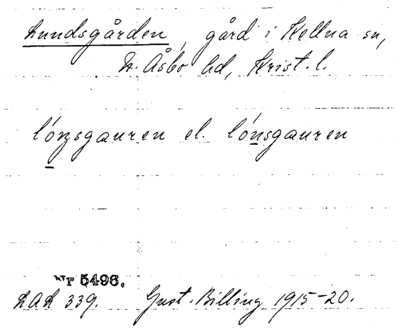 Lundsgården, gård i Källna sn,
N. Åsbo hd, Krist. l.
lónsgauren el. lónsgauren
Nr 5496.
LAL 339. Gust. Billing 1915-20.